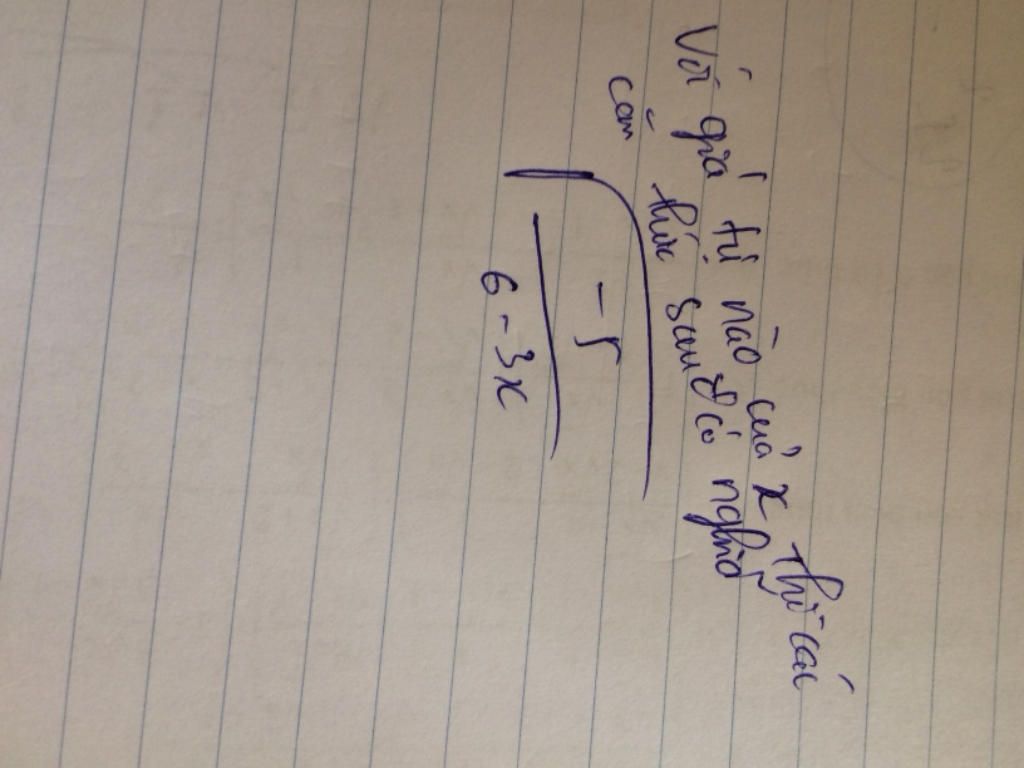 Với giá trị nào của x thì các
căn thức sau có nghĩa
√
-5
6-3x